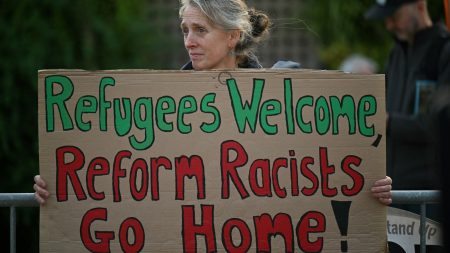 Refugees Welcome,
Reform Racists
Go Home!
Stand Up